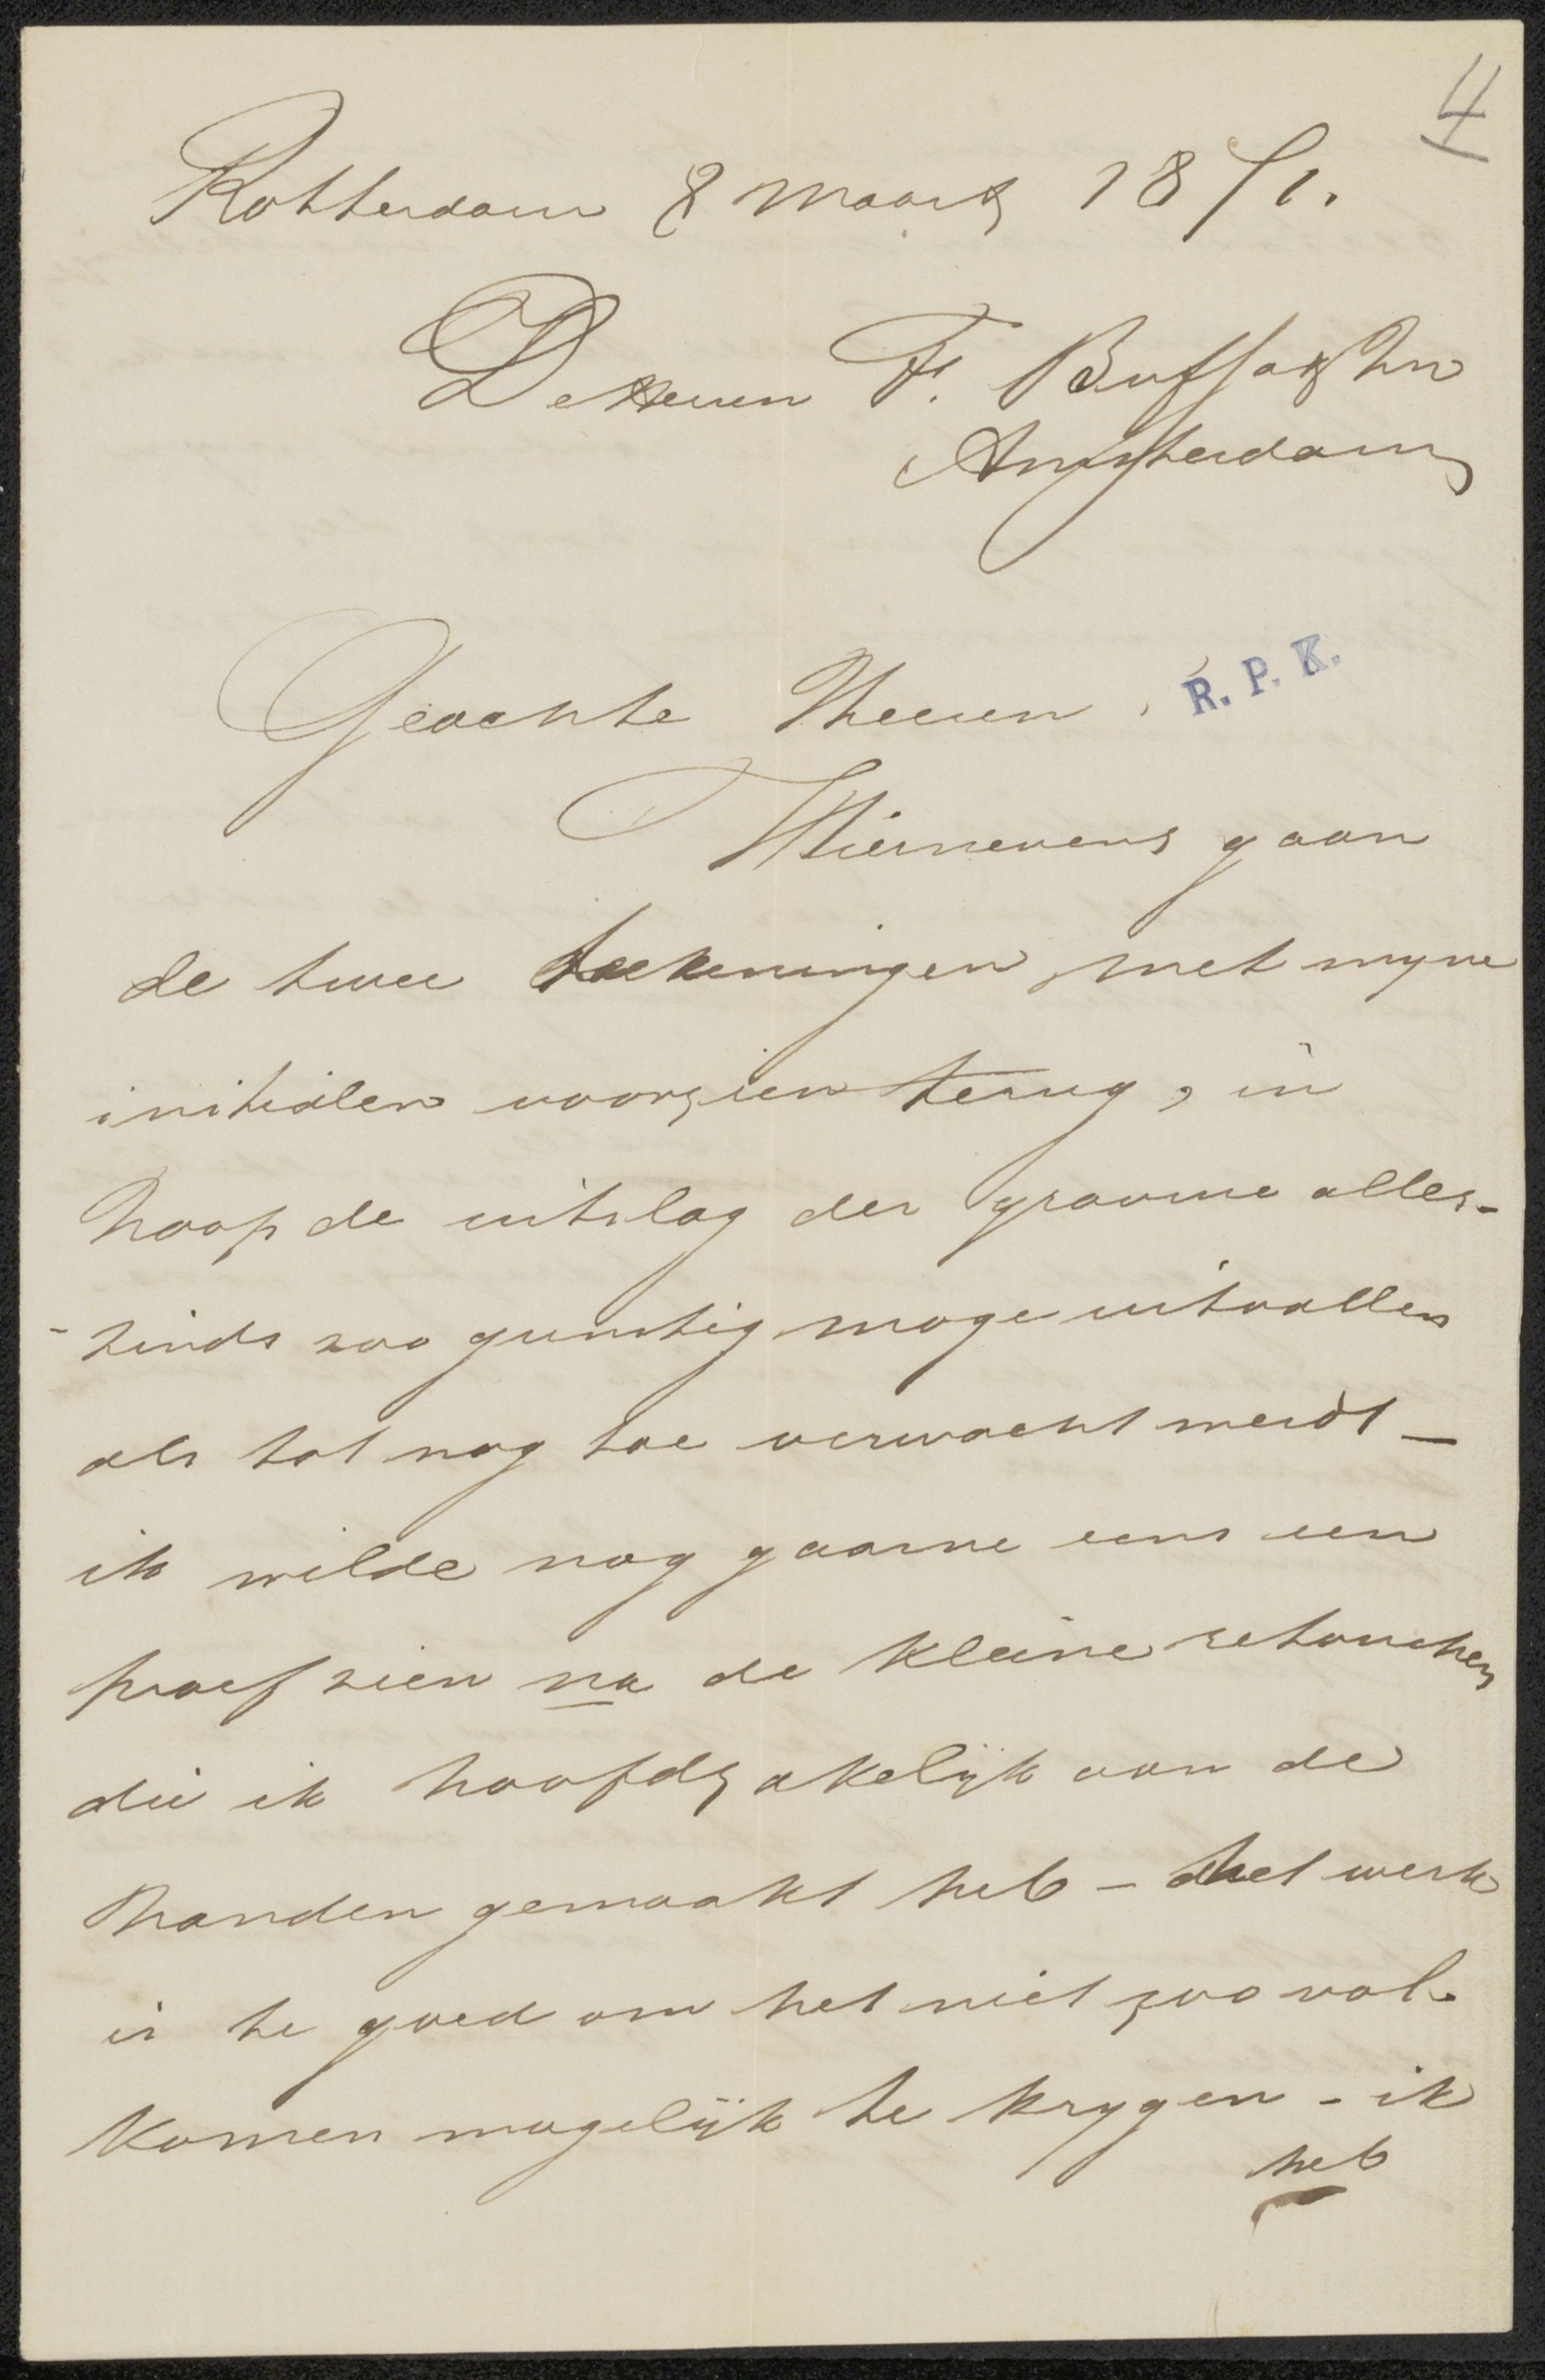 4
Rotterdam 8 Maart 1871.
De Heeren F. Buffa & Zn
Amsterdam
Geachte Heeren, R. P. K.
Hiernevens gaan
de twee teekeningen, met myne
initialen voorzien terug, in
hoop de uitslag der gravure alles-
-zinds zoo gunstig moge uitvallen
als tot nog toe verwacht werdt —
ik wilde nog gaarne eens een
proef zien na de kleine retouches
die ik hoofdzakelijk aan de
handen gemaakt heb — het werk
is te goed om het niet zoo vol-
komen mogelijk te krygen - ik
heb